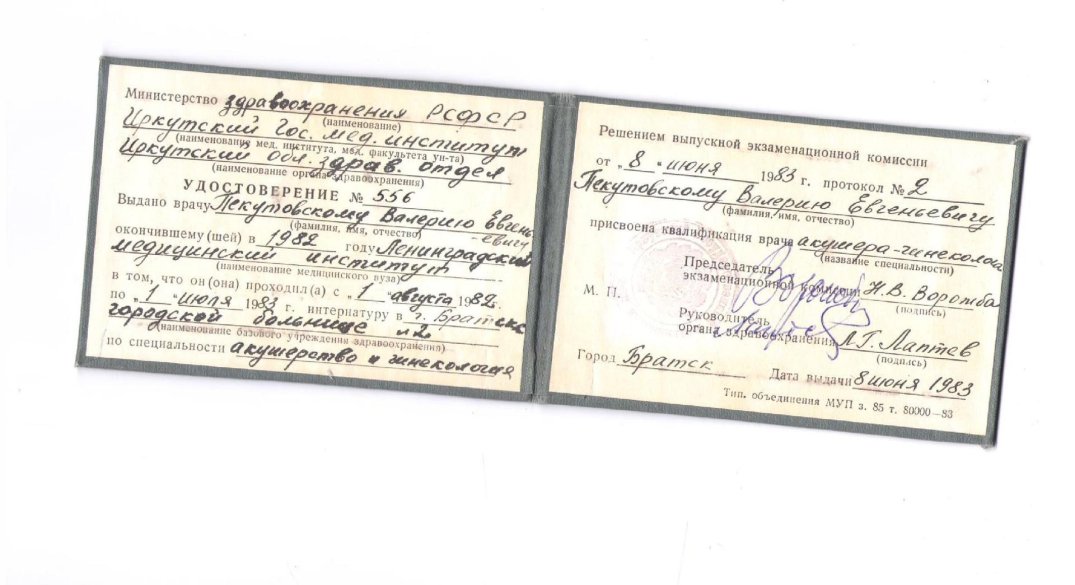 Министерство здравоохранения РСФСР
(наименование)
Иркутский Гос. мед. институт
(наименование мед. института, мед. факультета ун-та)
Иркутский обл. здрав. отдел
(наименование органа здравоохранения)
УДОСТОВЕРЕНИЕ № 556
Выдано врачу Пекутовскому Валерию Евгень
евичу
(фамилия, имя, отчество)
окончившему(шей) в 1982 году Ленинградский
медицинский институт
(наименование медицинского вуза)
в том, что он(она) проходил(а) с „1 " августа 1982.
по „1 " июля 1983 г. интернатуру в г. Братске
городской больнице №2
(наименование базового учреждения здравоохранения)
по специальности акушерство и гинекология
Решением выпускной экзаменационной комиссии
от „8 " июня 1983 г. протокол № 2
Пекутовскому Валерию Евгеньевичу
(фамилия, имя, отчество)
присвоена квалификация врача акушера-гинеколога
(название специальности)
Председатель
экзаменационной комиссии Н.В. Воромба
(подпись)
М. П.
Руководитель
органа здравоохранения Л.Г. Лаптев
(подпись)
Город Братск Дата выдачи 8 июня 1983
Тип. объединения МУП з. 85 т. 80000—83